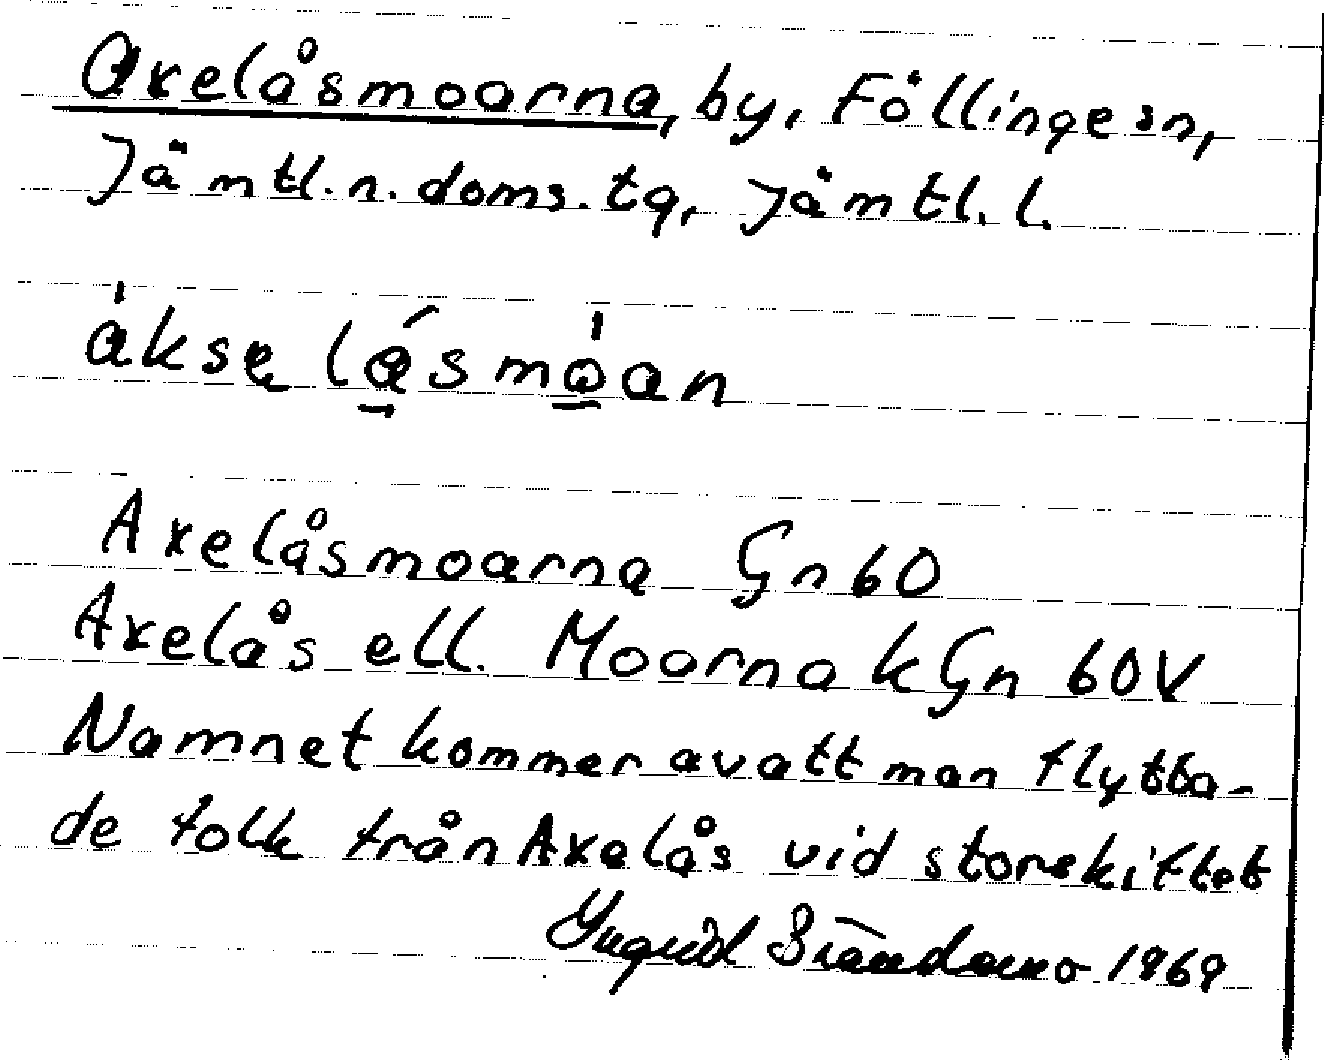 Axelåsmoarna, by, Föllinge sn,
Jämtl. n. doms. tg, Jämtl. l.
àkse̜lǻsmòan
Axelåsmoarna Gn 60
Axelås ell. Moarna k Gn 60 V
Namnet kommer av att man flytta-
de folk från Axelås vid storskiftet
Ingrid 1969